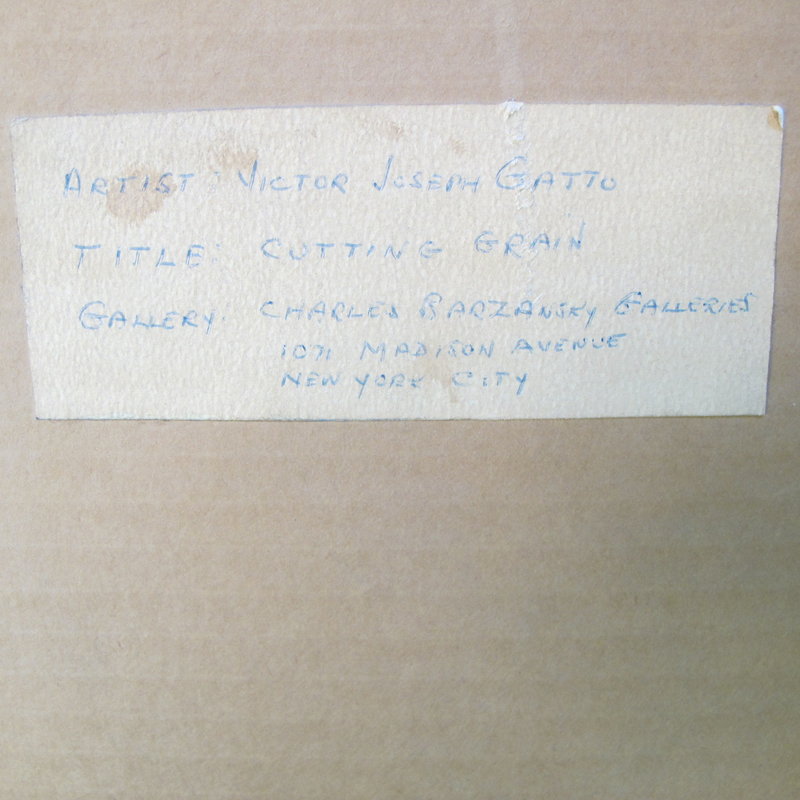 ARTIST: VICTOR JOSEPH GATTO
TITLE: CUTTING GRAIN
GALLERY: CHARLES BARZANSKY GALLERIES
1071 MADISON AVENUE
NEW YORK CITY